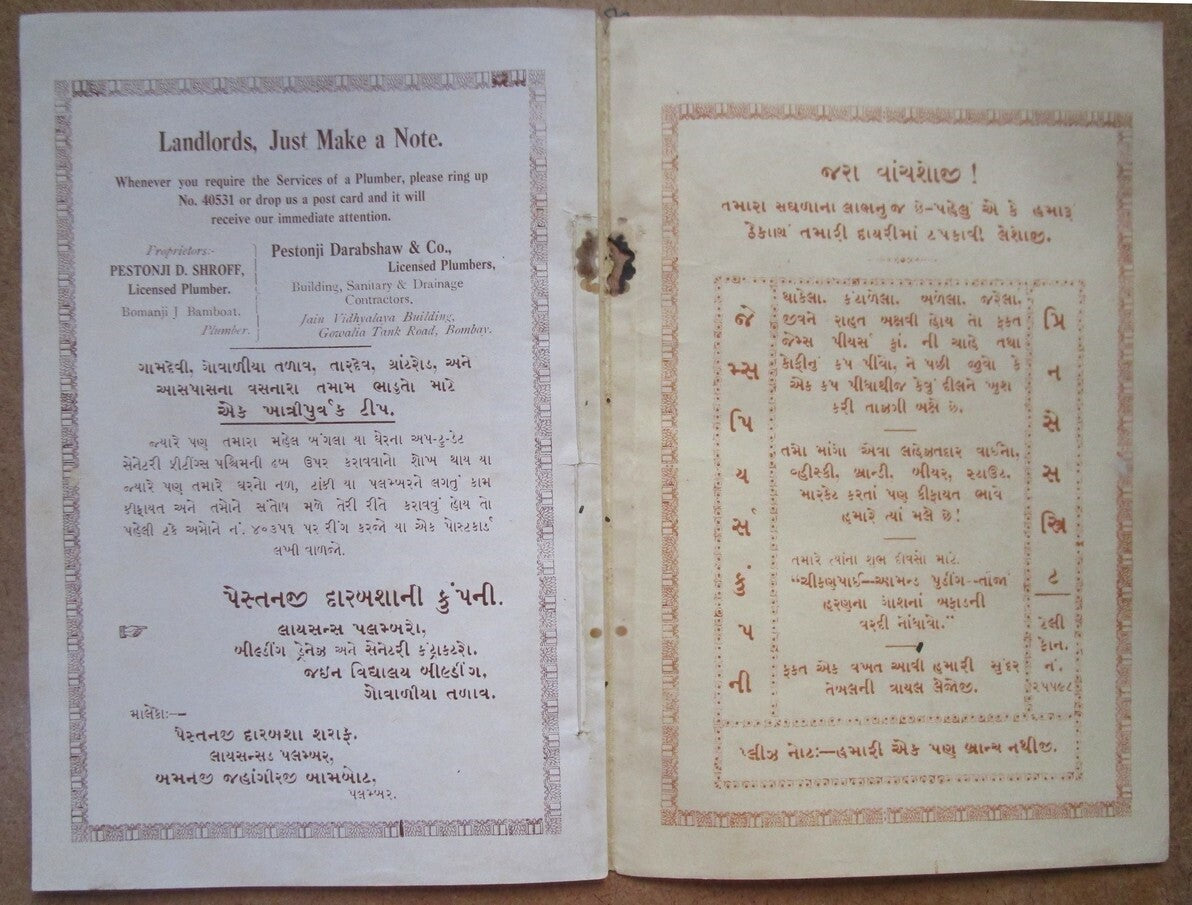 Landlords, Just Make a Note.
Whenever you require the Services of a Plumber, please ring up
No. 40531 or drop us a post card and it will
receive our immediate attention.
Proprietors:-
PESTONJI D. SHROFF,
Licensed Plumber.
Bomanji J Bamboat.
Plumber.
Pestonji Darabshaw & Co.,
Licensed Plumbers,
Building, Sanitary & Drainage
Contractors,
Jain Vidhyalaya Building,
Gowalia Tank Road, Bombay.
ગામદેવી, ગોવાળીયા તળાવ, તારદેવ, ગ્રાંટરોડ, અને
આસપાસના વસનારા તમામ ભાડુતો માટે
એક ખાત્રીપુર્વક ટીપ.
જ્યારે પણ તમારા મહેલ બંગલા યા ઘેરના અપ-ટુ-ડેટ
સેનેટરી ફીટીંગ્સ પશ્ચિમની ઢબ ઉપર કરાવવાનો શોખ થાય યા
જ્યારે પણ તમારે ઘરનો નળ, ટાંકી યા પલમ્બરને લગતું કામ
કીફાયત અને તમોને સંતોષ મળે તેરી રીતે કરાવવું હોય તો
પહેલી તકે અમોને નં. ૪૦૩૫૧ પર રીંગ કરજો યા એક પોસ્ટકાર્ડ
લખી વાળજો.
પેસ્તનજી દારબશાની કુંપની.
લાયસન્સ પલમ્બરો,
બીલ્ડીંગ ડ્રેનેઝ અને સેનેટરી કંટ્રાકટરો.
જઇન વિદ્યાલય બીલ્ડીંગ,
ગોવાળીયા તળાવ.
માલેકોઃ—
પેસ્તનજી દારબશા શરાફ,
લાયસન્સડ પલમ્બર,
બમનજી જહાંગીરજી બામબોટ,
પલમ્બર.
જરા વાંચશોજી !
તમારા સઘળાના લાભનુજ છે-પહેલું એ કે હમારૂં
ઠેકાણું તમારી દાયરીમાં ટપકાવી લેશોજી.
જેમ્સ પિયર્સ કુંપની
થાકેલા, કંટાળેલા, બળેલા, જરેલા,
જીવને રાહત બક્ષવી હોય તો ફકત
જેમ્સ પીયર્સ કુાં. ની ચાહે તથા
કોફીનું કપ પીવો, ને પછી જુવો કે
એક કપ પીધાથીજ કેવું દીલને ખુશ
કરી તાઝગી બક્ષે છે.
તમો માંગો એવા લાહેઝતદાર વાઈનો,
વ્હીસ્કી, બ્રાન્ડી, બીયર, સ્ટાઉટ,
મારકેટ કરતાં પણ કીફાયત ભાવે
હમારે ત્યાં મલે છે!
તમારે ત્યાંના શુભ દીવસો માટે.
“ચીકણપાઈ—આમન્ડ પુડીંગ—તાજાં
હરણના ગોશનાં બફાડની
વરદી નોંધાવો.”
ફકત એક વખત આવી હમારી સુંદર
તેબલની ત્રાયલ લેજોજી.
પ્રિન્સેસ સ્ત્રિટ
ટેલી
ફોન.
નં.
૨૫૫૯૮
પ્લીઝ નોટઃ—હમારી એક પણ બ્રાન્ચ નથીજી.